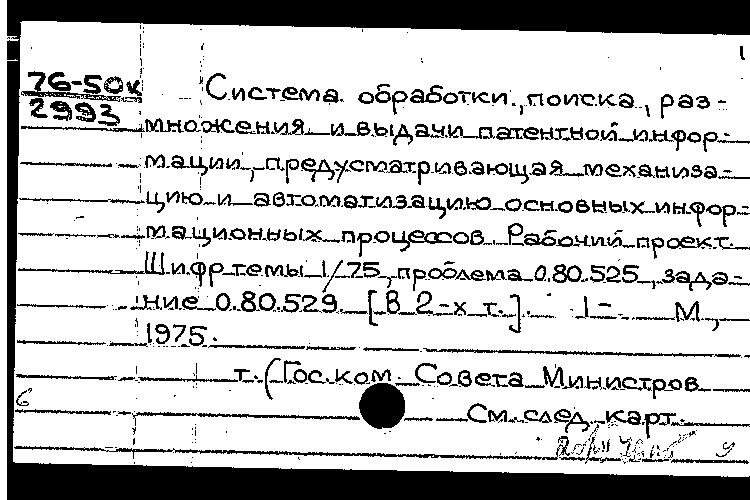 1
76-50к
2993
Система обработки, поиска, раз-
множения и выдачи патентной инфор-
мации, предусматривающая механиза-
цию и автоматизацию основных инфор-
мационных процессов. Рабочий проект.
Шифр темы 1/75, проблема 0.80.525, зада-
ние 0.80.529. [В 2-х т.]. 1- М,
1975.
т. (Гос. ком. Совета Министров
См. след. карт.
6
9